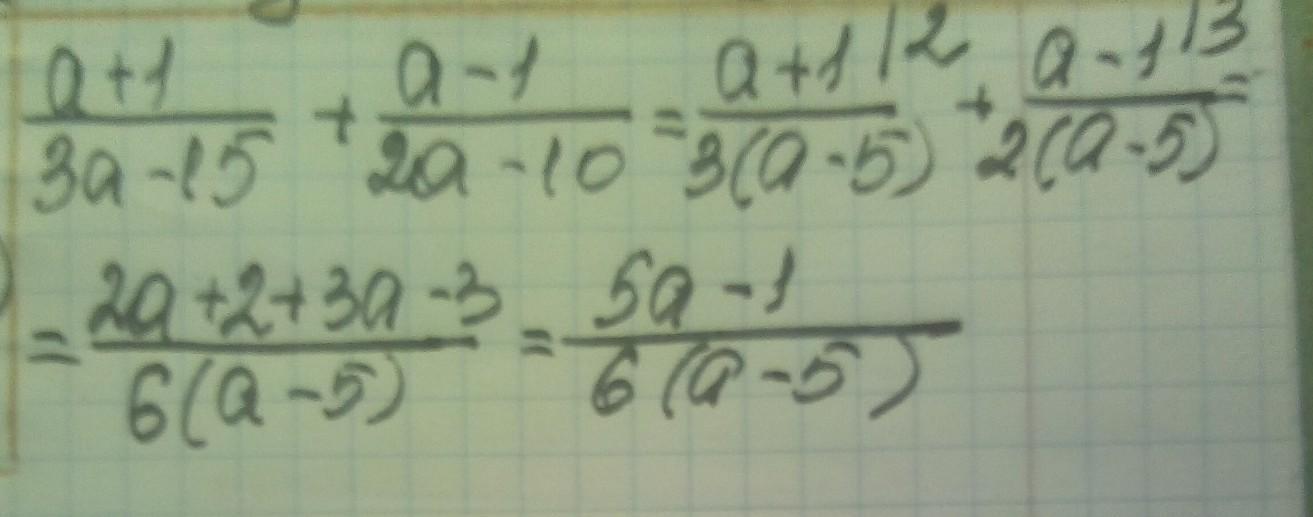 (a+1)/(3a-15) + (a-1)/(2a-10) = (a+1|2)/(3(a-5)) + (a-1|3)/(2(a-5)) =
= (2a+2+3a-3)/(6(a-5)) = (5a-1)/(6(a-5))